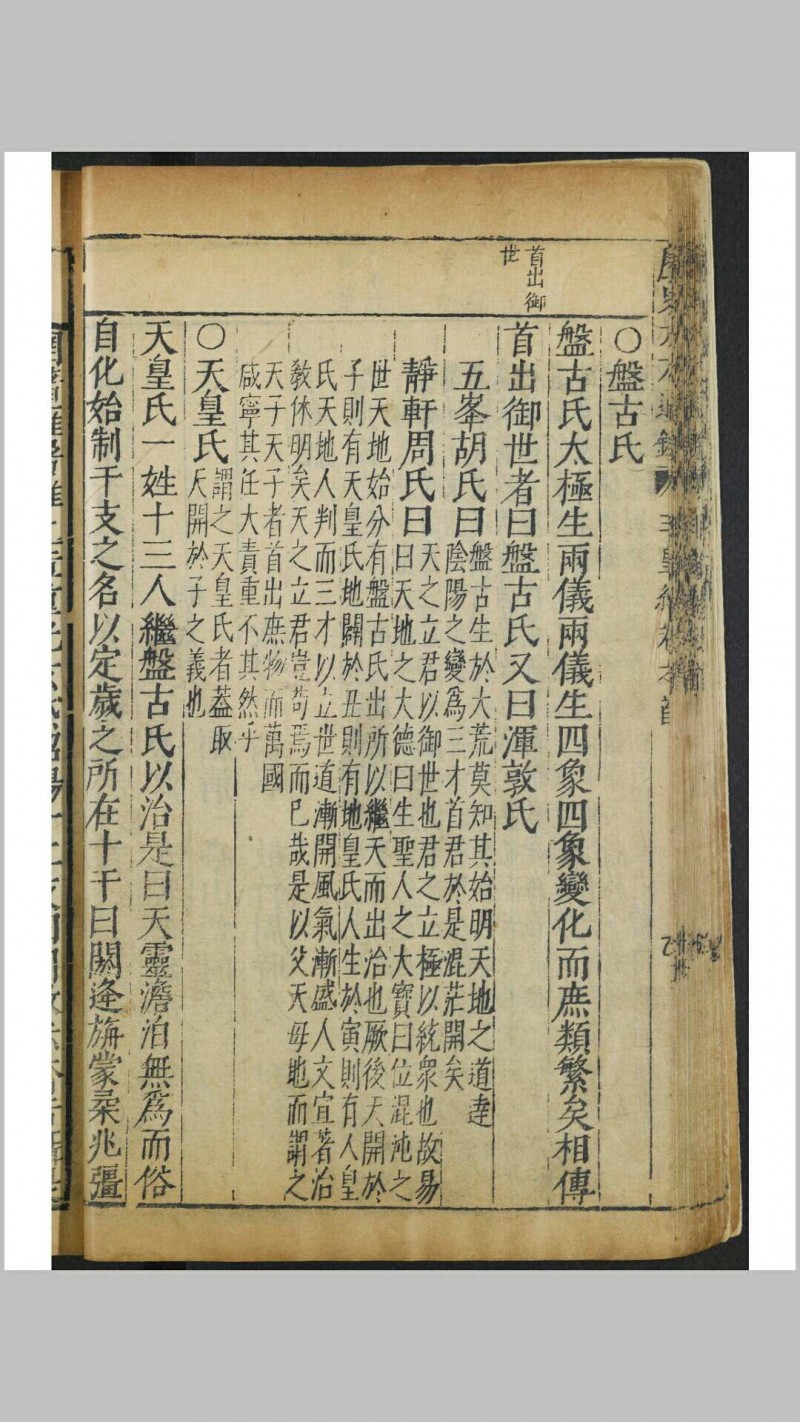 首出御
世
○盤古氏
盤古氏太極生兩儀兩儀生四象四象變化而庶類繁矣相傳
首出御世者曰盤古氏又曰渾敦氏
五峯胡氏曰
盤古生於大荒莫知其始明天地之道達
陰陽之變爲三才首君於是混茫開矣
靜軒周氏曰
天之立君以御世也君之立極以統衆也故易
曰天地之大德曰生聖人之大寶曰位混沌之
世天地始分有盤古氏出所以繼天而出治也厥後天開於
子則有天皇氏地闢於丑則有地皇氏人生於寅則有人皇
氏天地人判而三才以立世道漸開風氣漸盛人文宜著治
教休明矣天之立君豈苟焉而已哉是以父天母地而謂之
天子天子者首出庶物而萬國
咸寧其任大責重不其然乎
○天皇氏
謂之天皇氏者蓋取
天開於子之義也
天皇氏一姓十三人繼盤古氏以治是曰天靈澹泊無爲而俗
自化始制干支之名以定歲之所在十干曰閼逢旃蒙柔兆彊